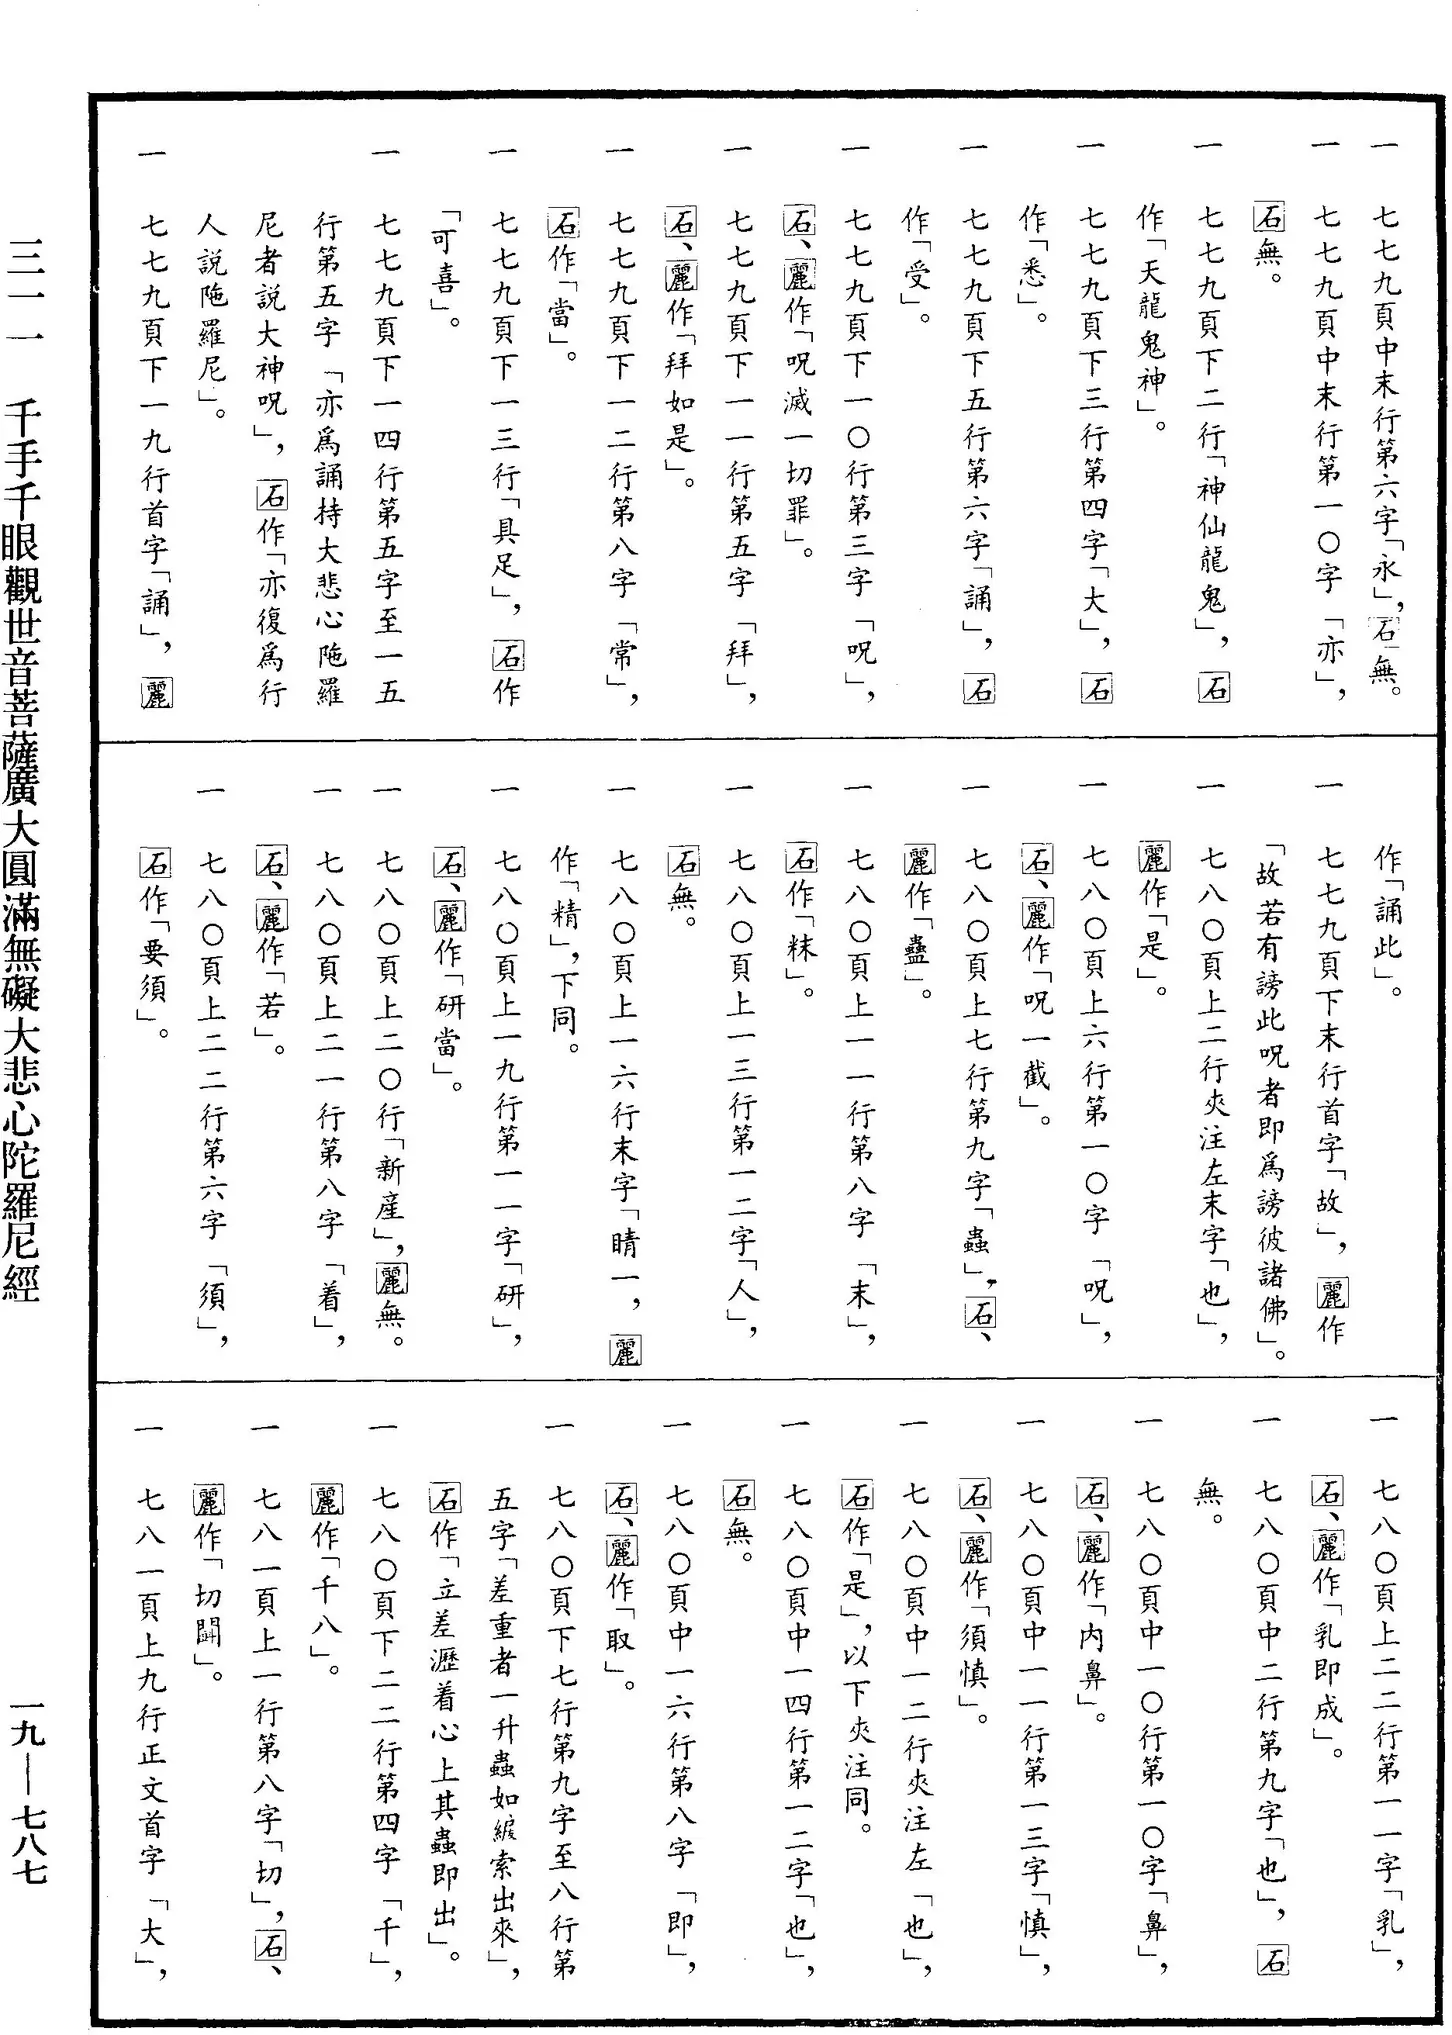 一　七七九頁中末行第六字「永」，石無。
一　七七九頁中末行第一〇字「亦」，
石無。
一　七七九頁下二行「神仙龍鬼」，石
作「天龍鬼神」。
一　七七九頁下三行第四字「大」，石
作「悉」。
一　七七九頁下五行第六字「誦」，石
作「受」。
一　七七九頁下一〇行第三字「呪」，
石、麗作「呪滅一切罪」。
一　七七九頁下一一行第五字「拜」，
石、麗作「拜如是」。
一　七七九頁下一二行第八字「常」，
石作「當」。
一　七七九頁下一三行「具足」，石作
「可喜」。
一　七七九頁下一四行第五字至一五
行第五字「亦爲誦持大悲心陁羅
尼者説大神呪」，石作「亦復爲行
人説陁羅尼」。
一　七七九頁下一九行首字「誦」，麗
作「誦此」。
一　七七九頁下末行首字「故」，麗作
「故若有謗此呪者即爲謗彼諸佛」。
一　七八〇頁上二行夾注左末字「也」，
麗作「是」。
一　七八〇頁上六行第一〇字「呪」，
石、麗作「呪一截」。
一　七八〇頁上七行第九字「蟲」，石、
麗作「蠱」。
一　七八〇頁上一一行第八字「末」，
石作「粖」。
一　七八〇頁上一三行第一二字「人」，
石無。
一　七八〇頁上一六行末字「睛一，麗
作「精」，下同。
一　七八〇頁上一九行第一一字「研」，
石、麗作「研當」。
一　七八〇頁上二〇行「新産」，麗無。
一　七八〇頁上二一行第八字「着」，
石、麗作「若」。
一　七八〇頁上二二行第六字「須」，
石作「要須」。
一　七八〇頁上二二行第一一字「乳」，
石、麗作「乳即成」。
一　七八〇頁中二行第九字「也」，石
無。
一　七八〇頁中一〇行第一〇字「鼻」，
石、麗作「内鼻」。
一　七八〇頁中一一行第一三字「慎」，
石、麗作「須慎」。
一　七八〇頁中一二行夾注左「也」，
石作「是」，以下夾注同。
一　七八〇頁中一四行第一二字「也」，
石無。
一　七八〇頁中一六行第八字「即」，
石、麗作「取」。
一　七八〇頁下七行第九字至八行第
五字「差重者一升蟲如綟索出來」，
石作「立差瀝着心上其蟲即出」。
一　七八〇頁下二二行第四字「千」，
麗作「千八」。
一　七八一頁上一行第八字「切」，石、
麗作「切鬪」。
一　七八一頁上九行正文首字「大」，
三一一　千手千眼觀世音菩薩廣大圓滿無礙大悲心陀羅尼經
一九—七八七